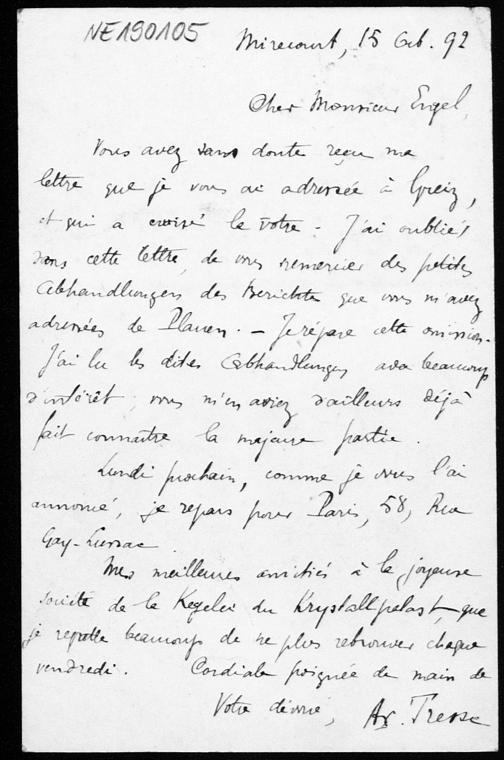 NE190105
Mirecourt, 15 Oct. 92
Cher Monsieur Engel,
Vous avez sans doute reçu ma
lettre que je vous ai adressée à Greiz,
et qui a croisé la vôtre. J'ai oublié,
dans cette lettre, de vous remercier des petites
Abhandlungen des Berichte que vous m'avez
adressées de Plauen. — Je répare cette omission.
J'ai lu les dites Abhandlungen avec beaucoup
d'intérêt; vous m'en aviez d'ailleurs déjà
fait connaître la majeure partie.
Lundi prochain, comme je vous l'ai
annoncé, je repars pour Paris, 58, Rue
Gay-Lussac.
Mes meilleures amitiés à la joyeuse
société de la Kegelei du Krystallpalast, que
je regrette beaucoup de ne plus retrouver chaque
vendredi. Cordiale poignée de main de
Votre dévoué, Ar. Tresse